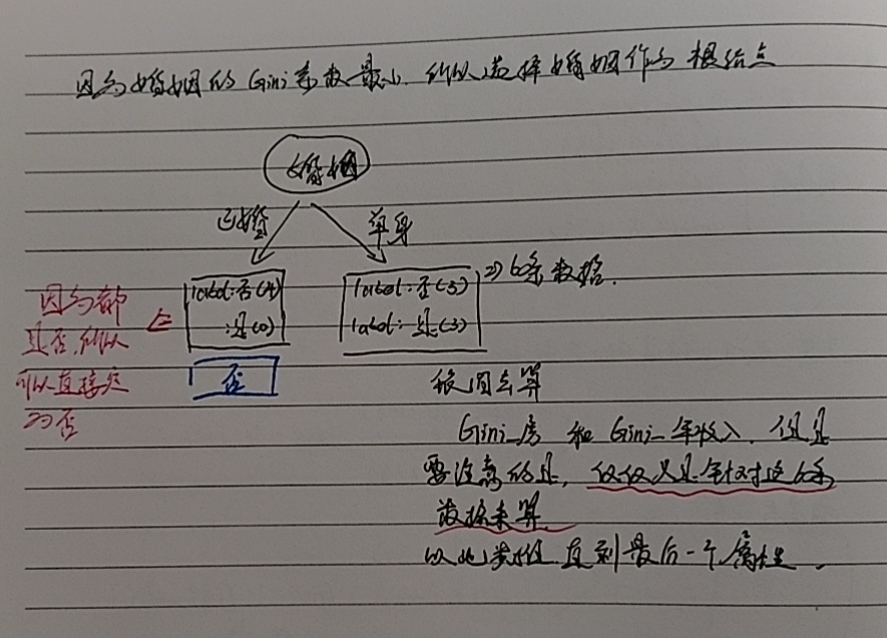 因为婚姻的Gini系数最小，所以选择婚姻作为根结点
婚姻
已婚
单身
label:否(4)
:是(0)
label:否(3)
label:是(3)
=> 6条数据.
因为都
是否,所以
可以直接定
为否
<=
否
返回去算
Gini_房 和 Gini_年收入. 但是
要注意的是, 仅仅只是针对这6条
数据来算
以此类推 直到最后一个属性.